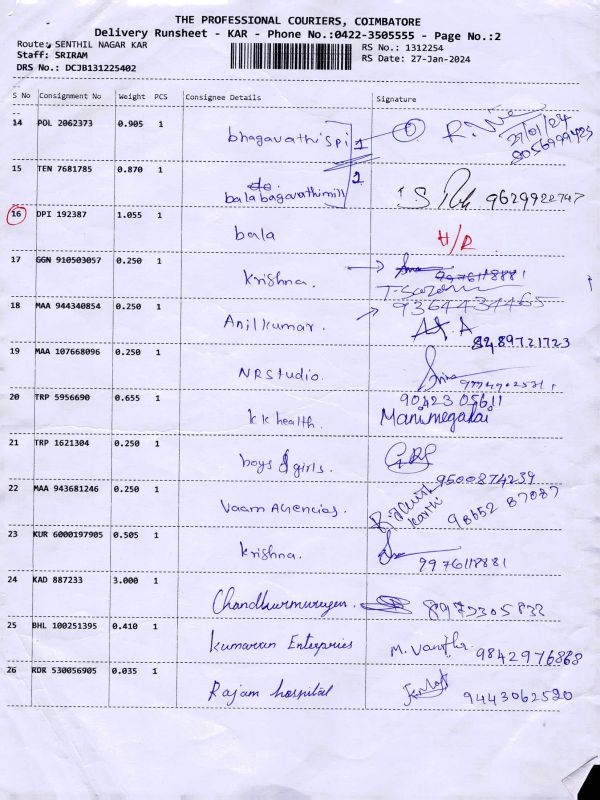 THE PROFESSIONAL COURIERS, COIMBATORE
Delivery Runsheet - KAR - Phone No.:0422-3505555 - Page No.:2
Route: SENTHIL NAGAR KAR
RS No.: 1312254
Staff: SRIRAM
RS Date: 27-Jan-2024
DRS No.: DCJB131225402
S No Consignment No Weight PCS Consignee Details Signature
14 POL 2062373 0.905 1 bhagavathi spi 1
27/01/24
8056999423
15 TEN 7681785 0.870 1 bala bagavathimill 2
9629922747
16 DPI 192387 1.055 1 bala H/R
17 GGN 910503057 0.250 1 krishna.
9976118881
9364434465
18 MAA 944340854 0.250 1 Anilkumar.
8489721723
19 MAA 107668096 0.250 1 NRStudio.
20 TRP 5956690 0.655 1 kk health. 9042305611
Manimegalai
21 TRP 1621304 0.250 1 boys & girls.
9500874239
22 MAA 943681246 0.250 1 Vaam Agencies. Karthi 98652 87087
23 KUR 6000197905 0.505 1 krishna.
9976118881
24 KAD 887233 3.000 1 Chandhurmurugen. 8973305832
25 BHL 100251395 0.410 1 kumaran Enterpries M. Vanitha. 9842976868
26 RDR 530056905 0.035 1 Rajam hospital 9443062520